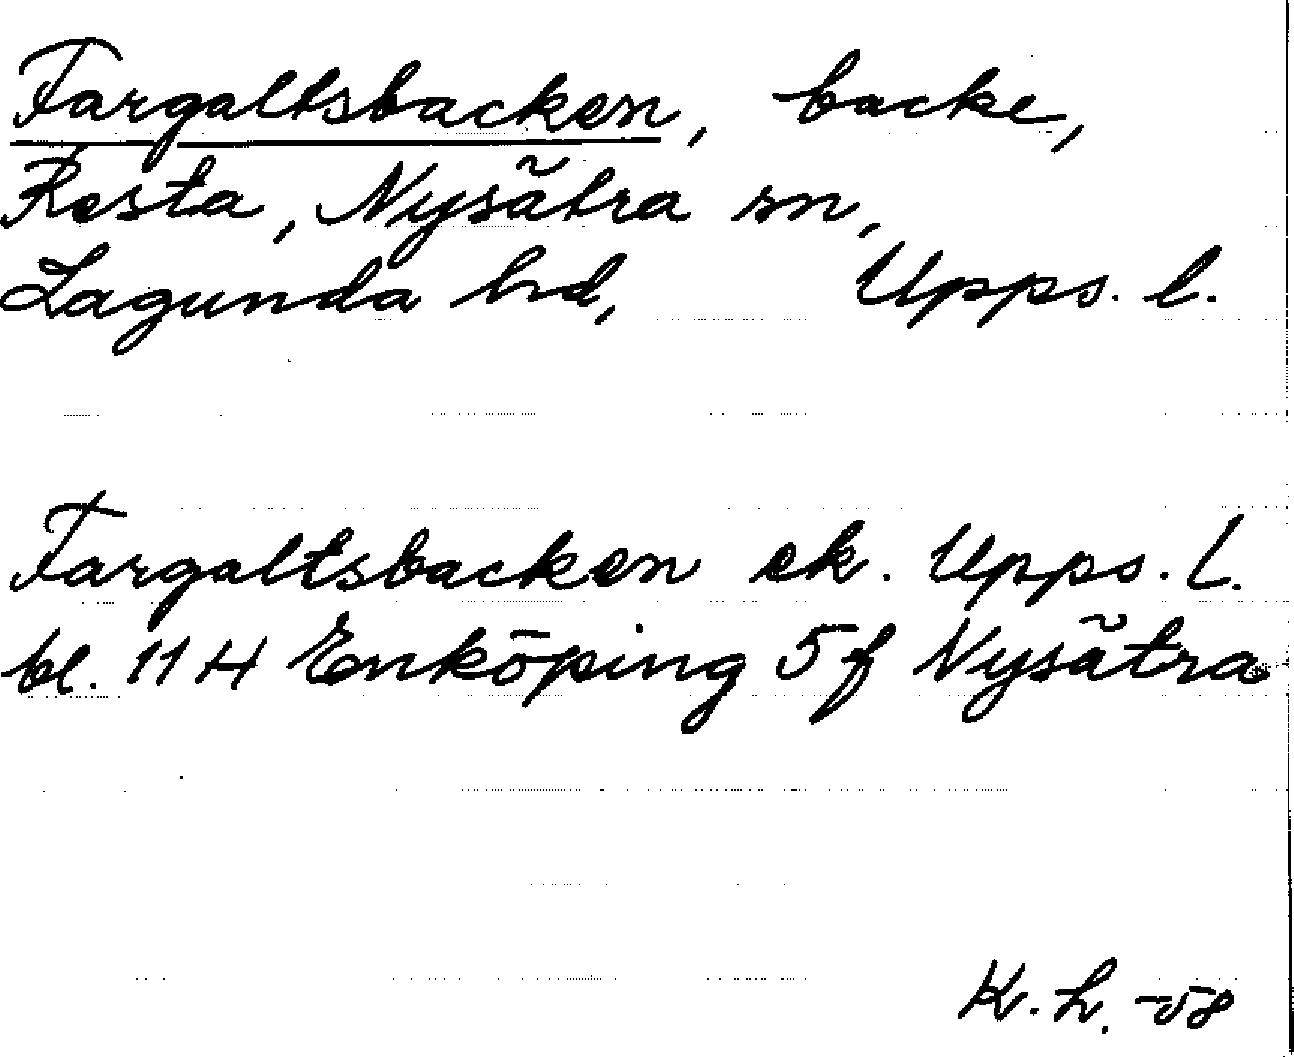 Fargaltsbacken, backe,
Resta, Nysätra sn,
Lagunda hd, Upps. l.
Fargaltsbacken ek. Upps. l.
bl. 11 H Enköping 5 f Nysätra
K. h. -58